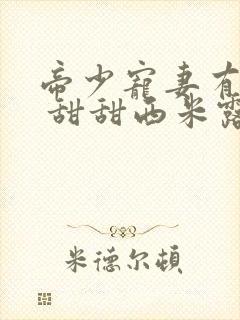 帝少寵妻有
甜甜西米露
米德尔頓